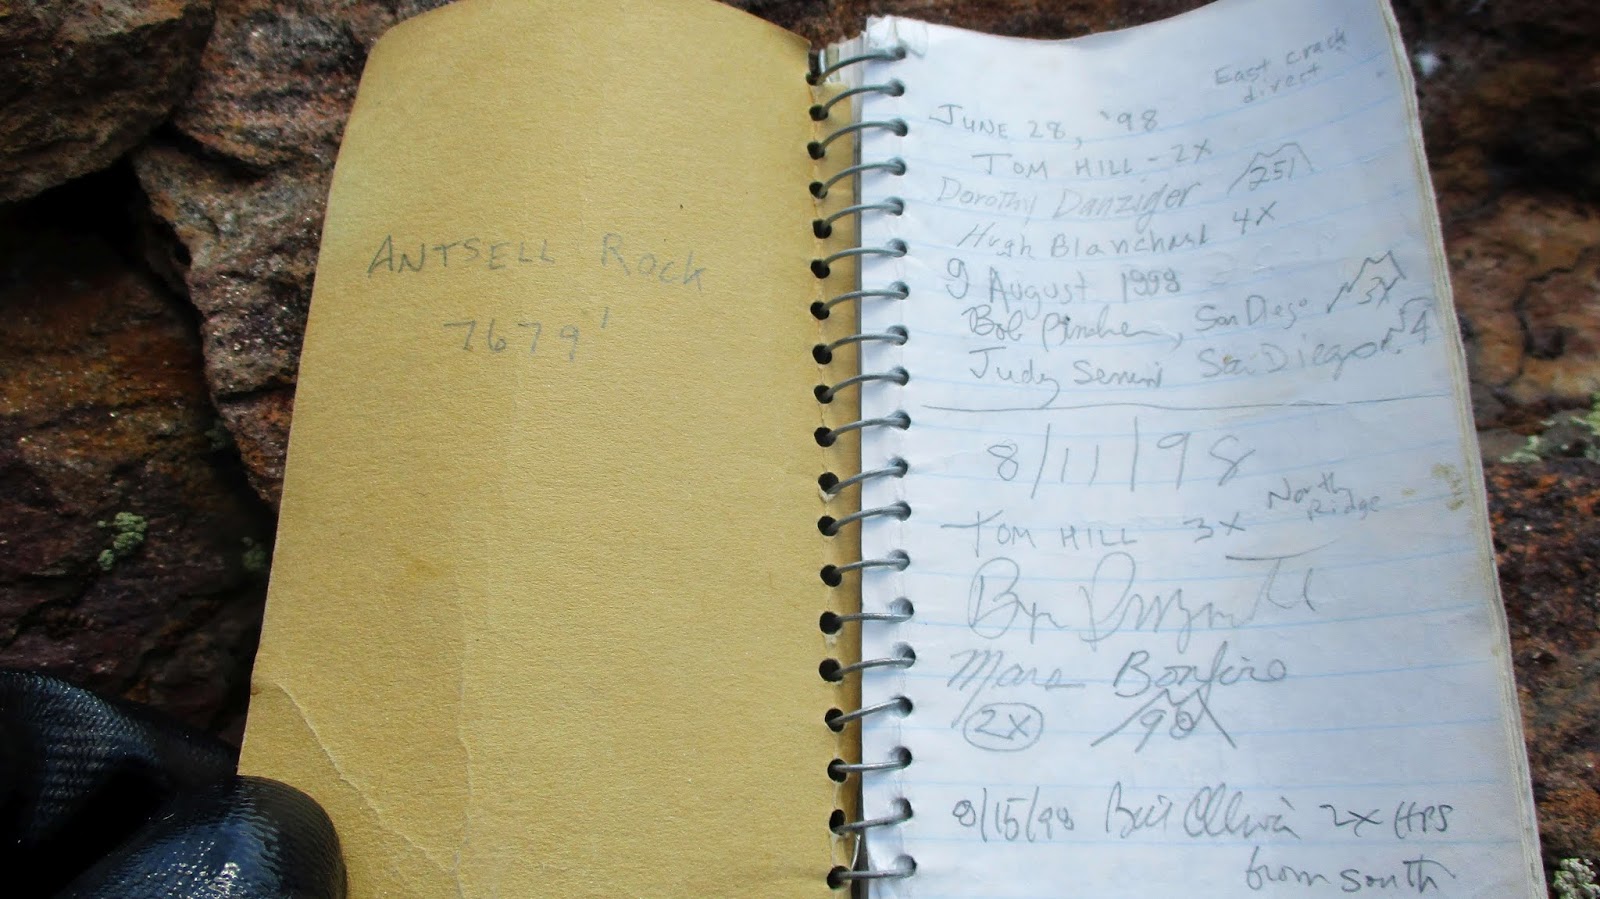 ANTSELL Rock
7679'
East crack
direct
JUNE 28, '98
TOM HILL - 2X
Dorothy Danziger 251
Hugh Blanchard 4X
9 August 1998
Bob, San Diego 3X
Judy San Diego 4
8/11/98
North
Ridge
TOM HILL 3X
Mars Bonfire
2X 90
8/15/98 Bill 2X HPS
from south